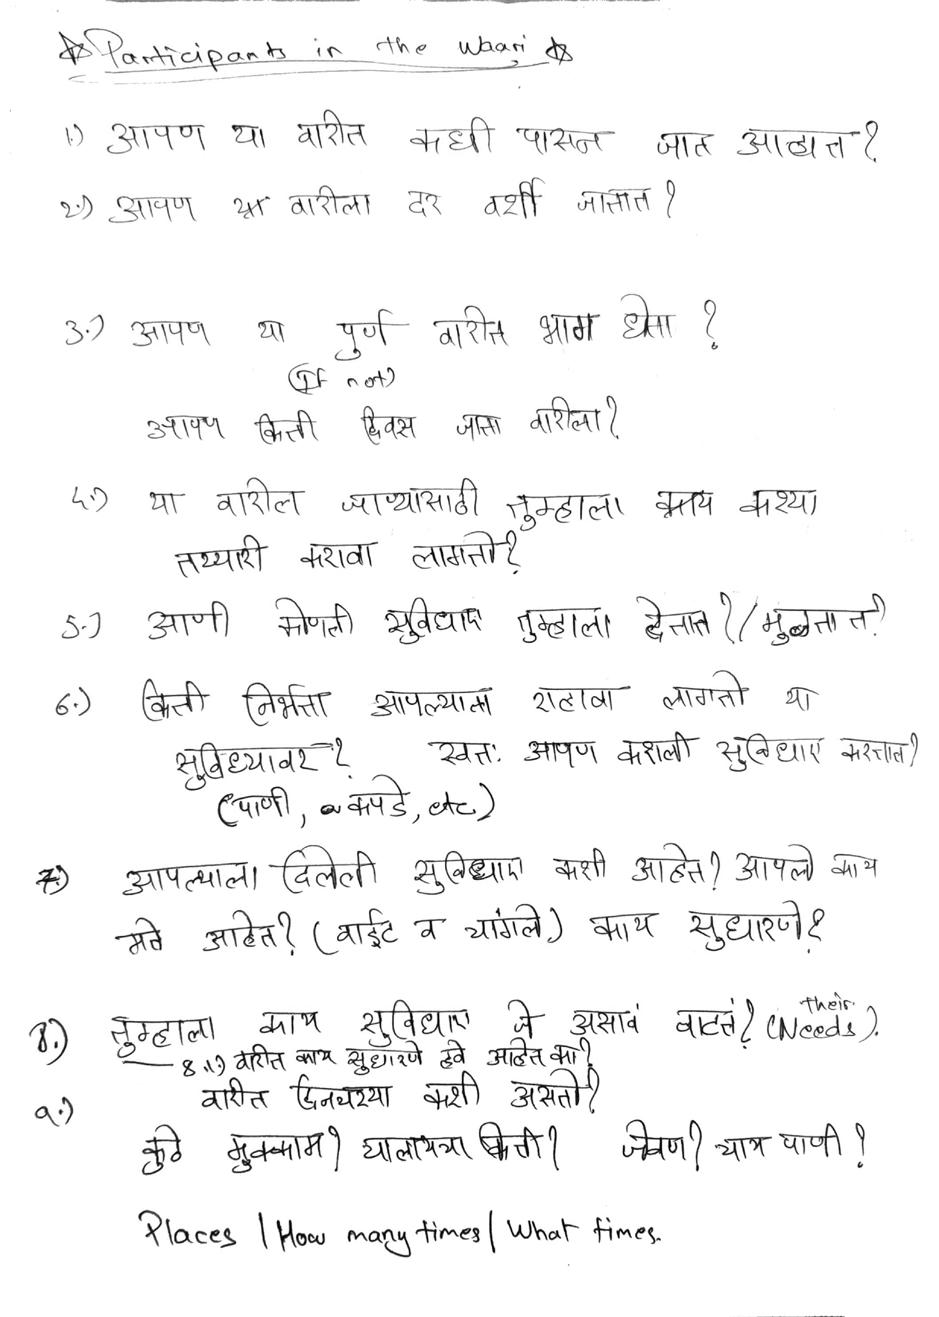 ☆ Participants in the Waari ☆
1.) आपण या वारीत कधी पासन जात आहात?
2.) आपण या वारीला दर वर्शी जातात?
3.) आपण या पुर्ण वारीत भाग घेता?
(If not)
आपण किती दिवस जाता वारीला?
4.) या वारील जाण्यासाठी तुम्हाला काय कश्या
तय्यारी करावा लागतो?
5.) आणी कोणती सुविधाए तुम्हाला देतात?/मुळतात?
6.) किती निर्भता आपल्याला राहावा लागतो या
सुविध्यावर? स्वतः आपण कशली सुविधाए करतात?
(पाणी, कपडे, etc)
7.) आपल्याला दिलेली सुविधाए कशी आहेत? आपले काय
मते आहेत? (वाईट व चांगले) काय सुधारणे?
8.) तुम्हाला काय सुविधाए जे असावं वाटतं? (their Needs).
8.1) वारीत काय सुधारणे हवे आहेत का?
9.) वारीत दिनचर्या कशी असतो?
कुठे मुक्काम? चालायचा किती? जेवण? चाय पाणी?
Places / How many times / What times.